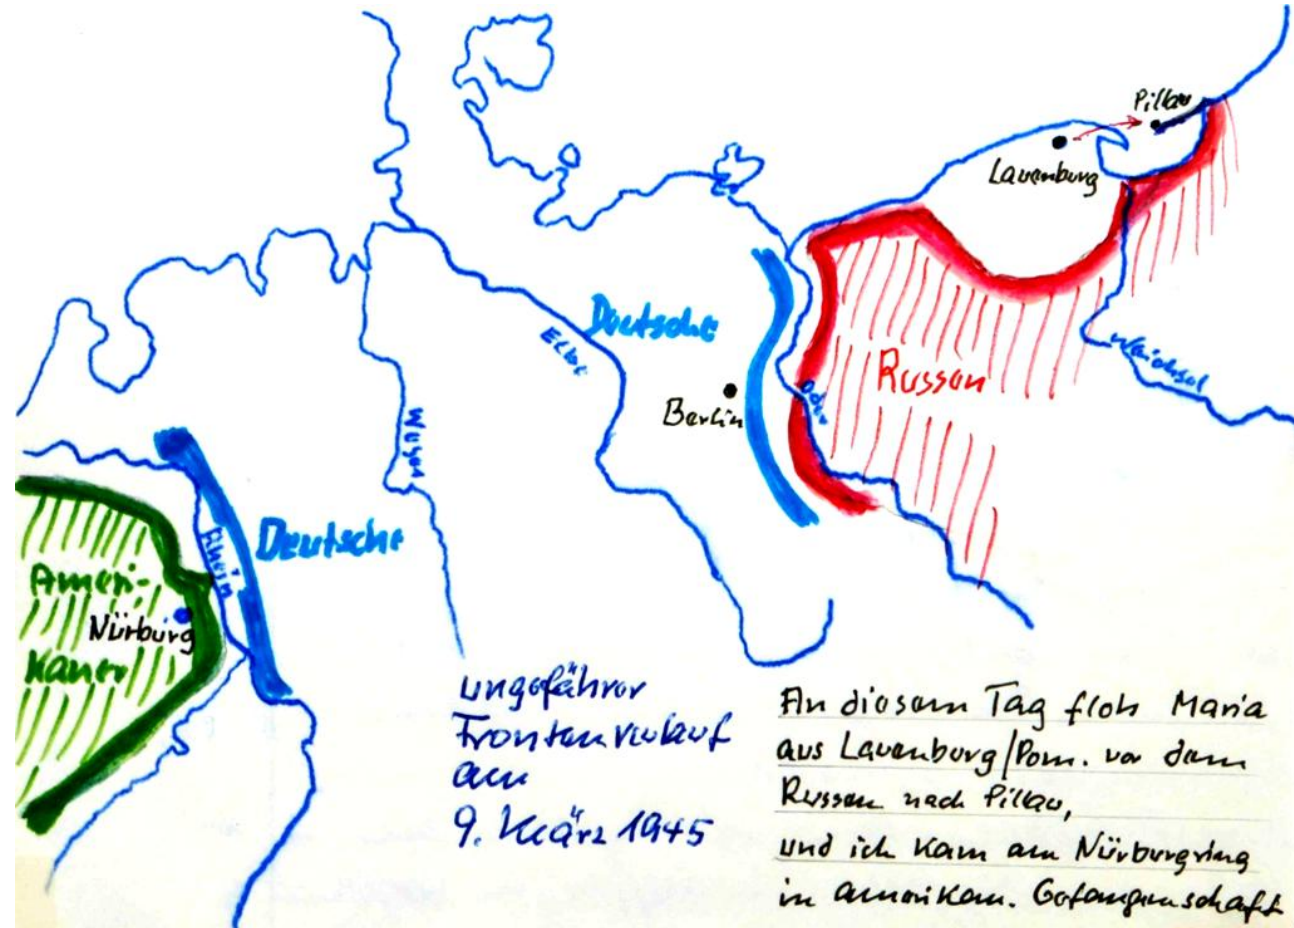 Pillau
Lauenburg
Deutsche
Elbe
Berlin
Oder
Russen
Weichsel
Weser
Rhein
Deutsche
Ameri-
kaner
Nürburg
ungefährer
Frontenverlauf
am
9. März 1945
An diesem Tag floh Maria
aus Lauenburg/Pom. vor dem
Russen nach Pillau,
und ich kam am Nürburgring
in amerikan. Gefangenschaft